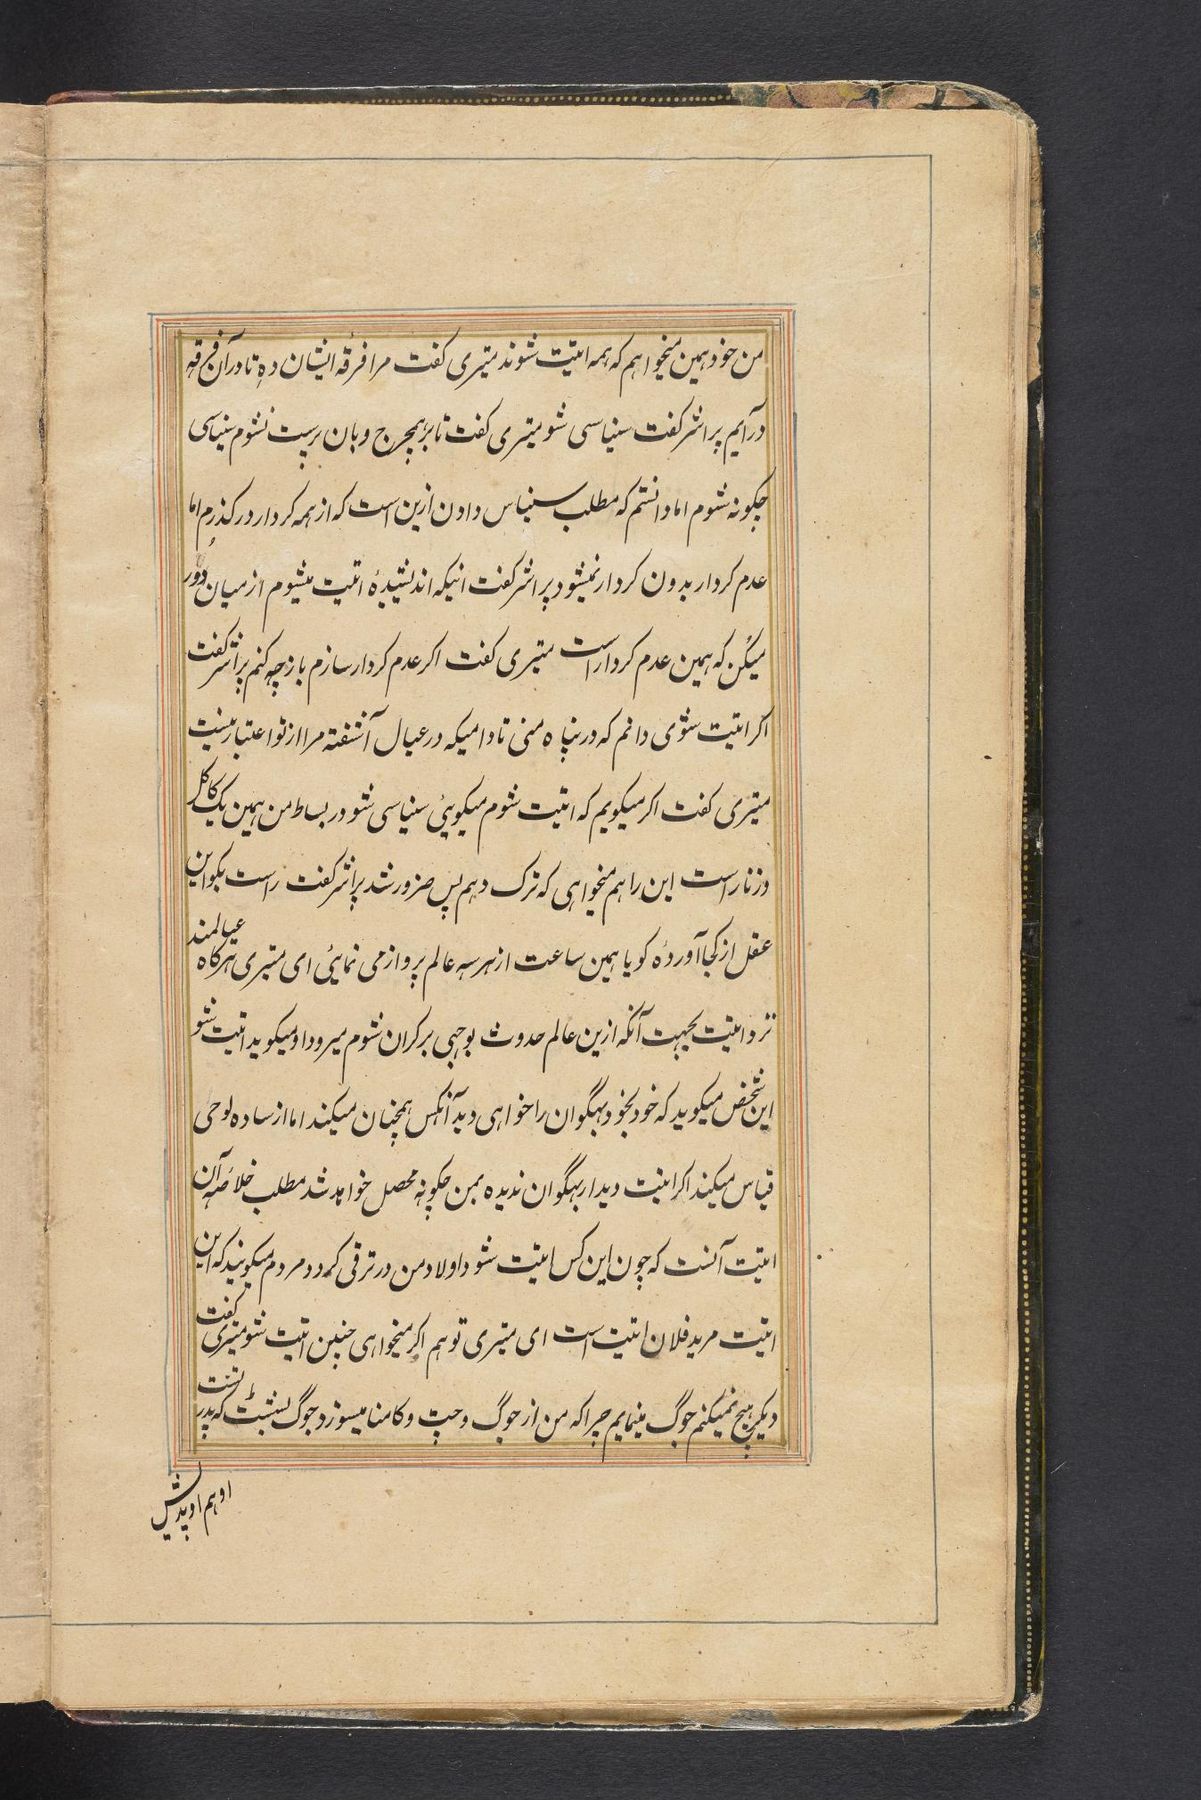 من خود همین میخواهم که همه اتیت شوند متیری کفت مرا فرقهٔ ایشان ده تا در آن فرقه
درآیم پراشر کفت سنیاسی شو متیری کفت تا برهمچرج و بان پرست نشوم سنیاسی
چکونه شوم اما دانستم که مطلب سنیاس دادن ازین است که از همه کردار درکذرم اما
عدم کردار بدون کردار نمیشود پراشر کفت انیکه اندیشیدهٔ اتیت میشوم از میان دور
میکن که همین عدم کردار است متیری کفت اکر عدم کردار سازم باز چه کنم پراشر کفت
اکر اتیت شوی دانم که در پناه منی تا دامیکه در عیال آشفته مرا از تو اعتبار نیست
متیری کفت اکر میکویم که اتیت شوم میکوئی سنیاسی شو در بساط من همین یک کاکل
و زنار است این را هم میخواهی که ترک دهم پس ضرور شد پراشر کفت راست بکو این
عقل از کجا آوردهٔ کویا همین ساعت از هر سه عالم پرواز می نمائی ای متیری هرکاه عیالمند
نزد اتیت بجهت آنکه ازین عالم حدوث بوجهی برکران شوم میرود او میکوید اتیت شو
این شخص میکوید که خود بخود بهکوان را خواهی دید آنکس همچنان میکند اما از ساده لوحی
قیاس میکند اکر اتیت دیدار بهکوان ندیده بمن چکونه محصل خواهد شد مطلب خلاصه آن
اتیت آنست که چون این کس اتیت شود اولاد من در ترقی کردد و مردم میکویند که این
اتیت مرید فلان اتیت است ای متیری تو هم اکر میخواهی چنین اتیت شو متیری کفت
دیکر هیچ نمیکنم جوک مینمایم چرا که من از جوک وچپ و کامنا میسوزد جوک بسشت که پدر تست
او هم اوپدیش